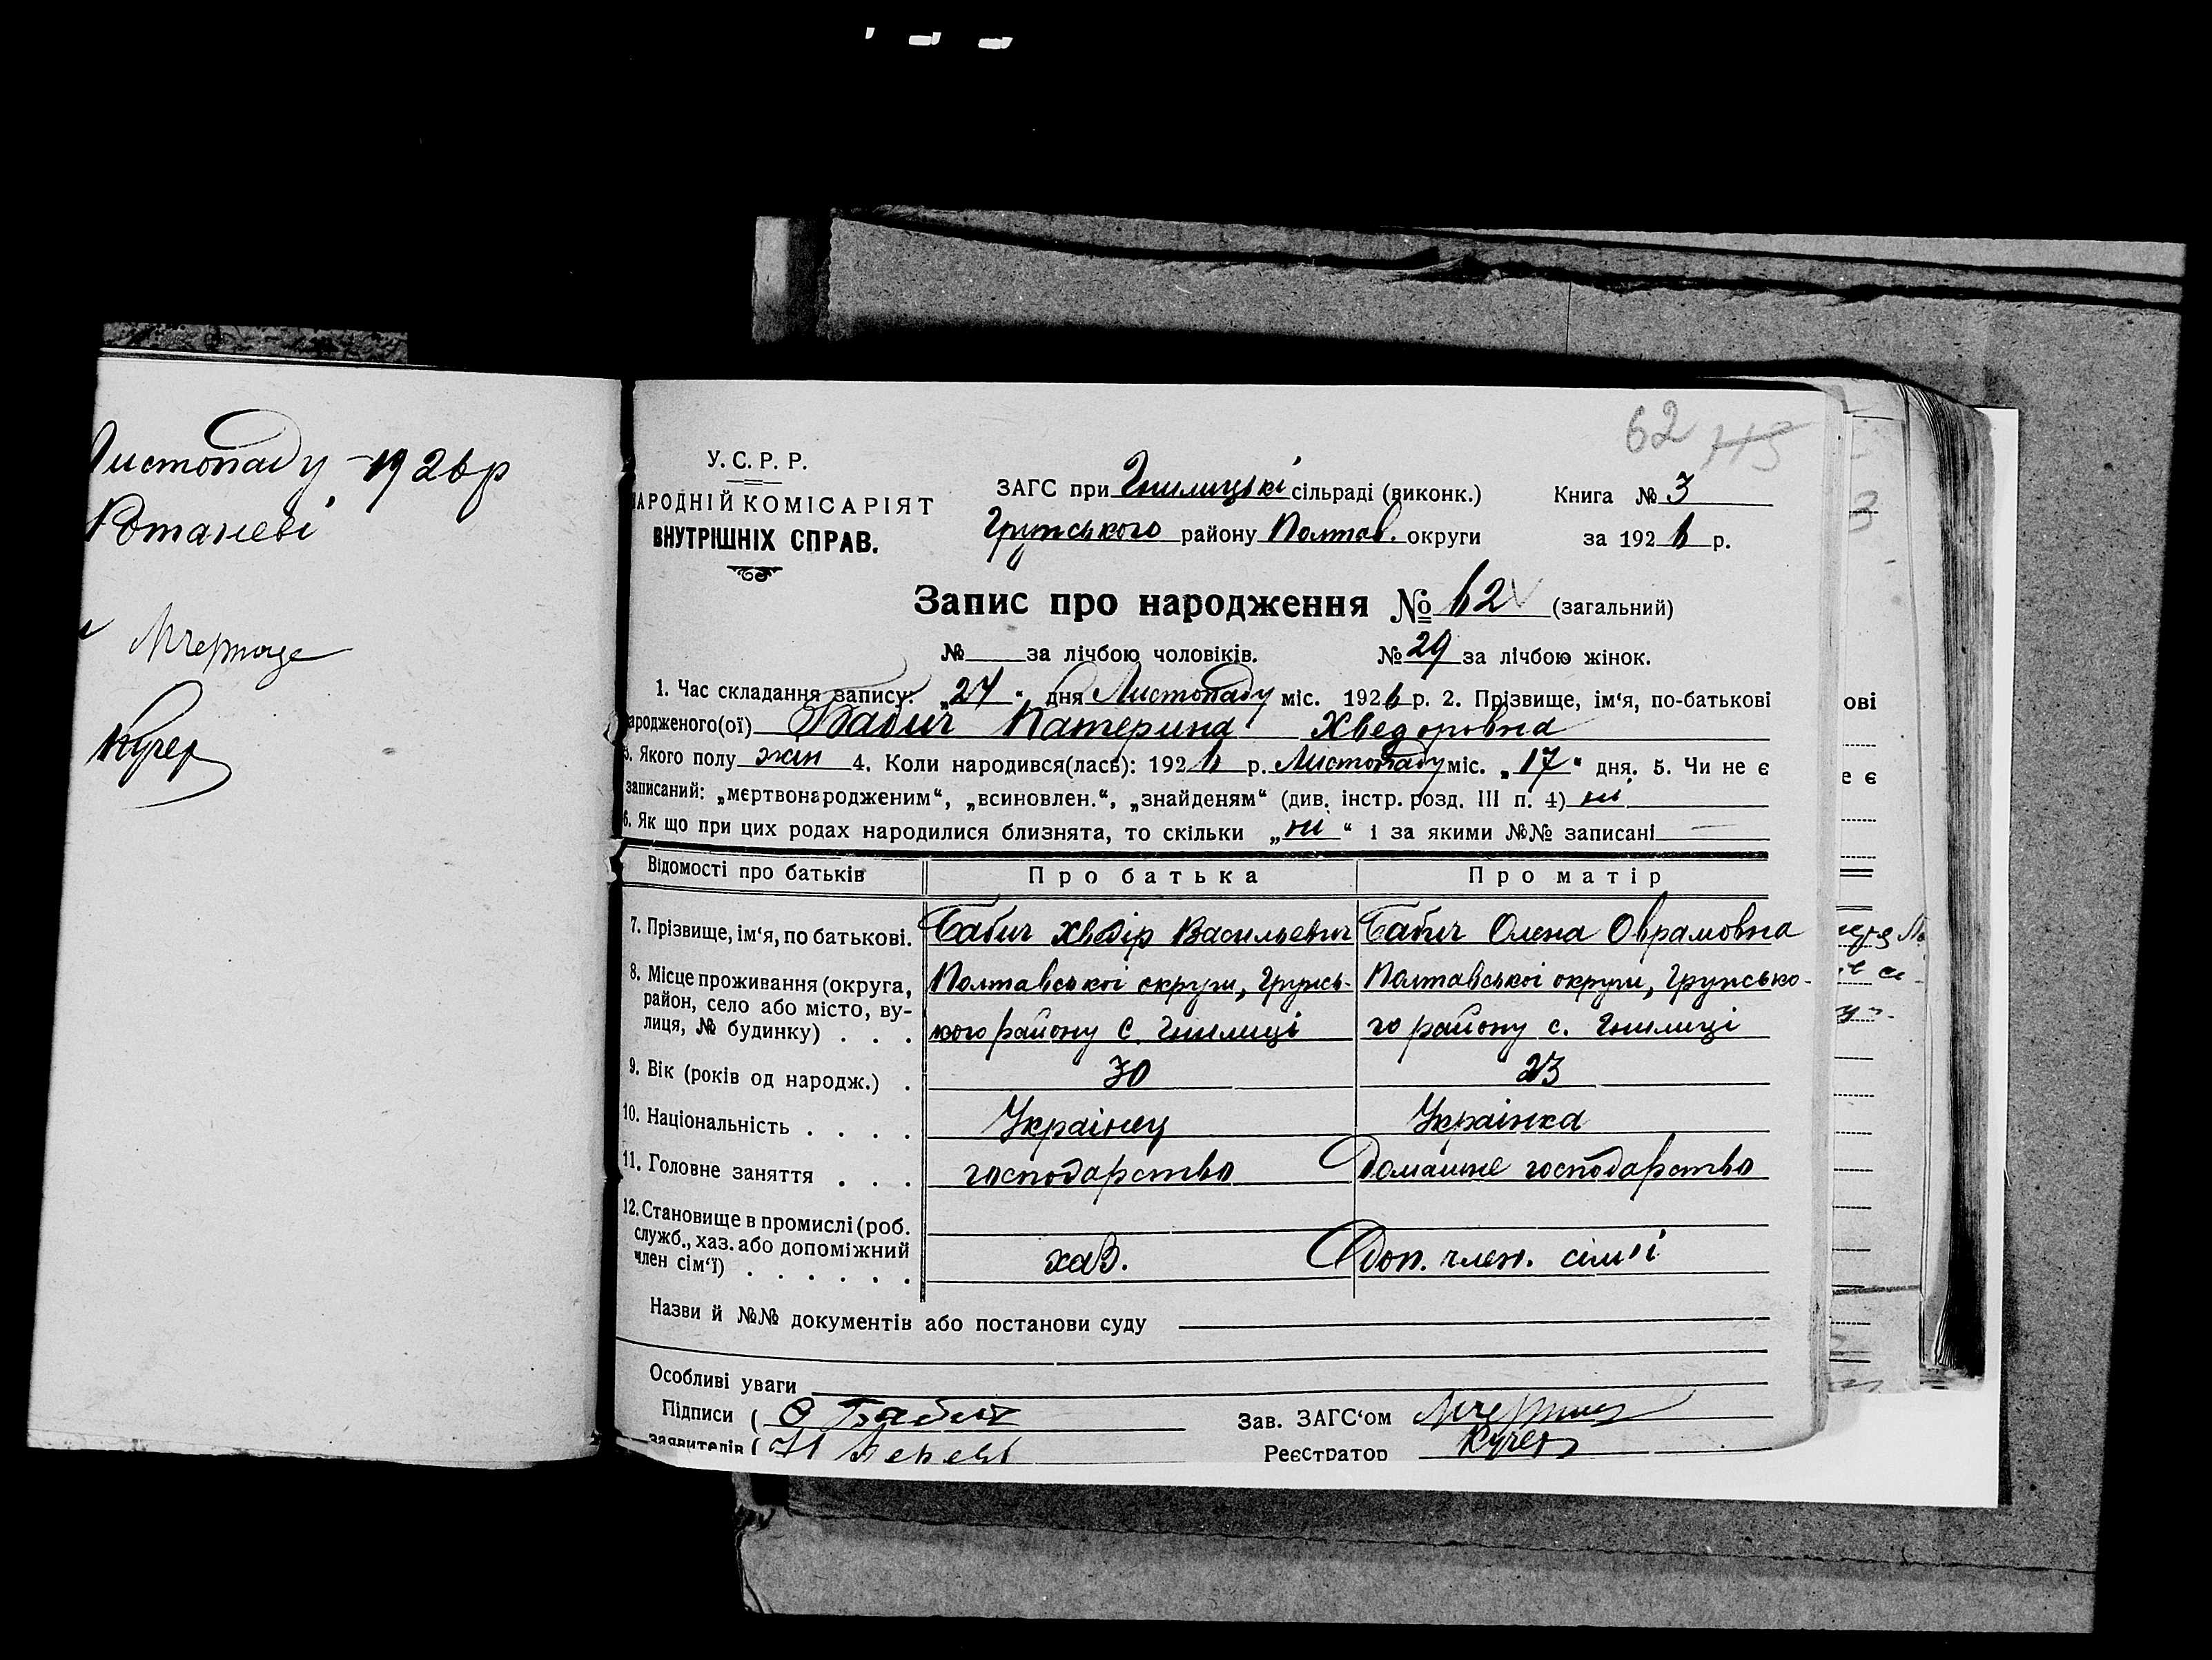 Листопаду - 1926 р
Кучер
62 113
У. С. Р. Р.
НАРОДНІЙ КОМІСАРІЯТ
ВНУТРІШНІХ СПРАВ.
ЗАГС при Гнилицькі сільраді (виконк.) Книга № 3
Грунського району Полтав. округи за 1926 р.
Запис про народження № 62 (загальний)
№ за лічбою чоловіків. № 29 за лічбою жінок.
1. Час складання запису: „24“ дня Листопаду міс. 1926 р. 2. Прізвище, ім‘я, по-батькові
народженого(ої) Бабич Катерина Хведоровна
3. Якого полу жін 4. Коли народився(лась): 1926 р. Листопаду міс. „17“ дня. 5. Чи не є
записаний: „мертвонародженим“, „всиновлен.“, „знайденям“ (див. інстр. розд. III п. 4) ні
6. Як що при цих родах народилися близнята, то скільки „ні“ і за якими №№ записані —
Відомості про батьків Про батька Про матір
7. Прізвище, ім‘я, по батькові. Бабич Хведір Васильевич Бабич Олена Оврамовна
8. Місце проживання (округа, район, село або місто, вулиця, № будинку) . . . Полтавської округи, Грунсь-
кого району с. Гнилиці
Полтавської округи, Грунсько-
го району с. Гнилиці
9. Вік (років од народж.) . 30 23
10. Національність . . . . Українец Українка
11. Головне заняття . . . господарство Домашне господарство
12. Становище в промислі (роб.
служб., хаз. або допоміжний
член сім‘ї) . . . . . . хаз. Доп. член. сім'ї
Назви й №№ документів або постанови суду
Особливі уваги
Підписи ( Ѳ Бабич Зав. ЗАГС‘ом
заявителів ( Реєстратор Кучер
ові
е є